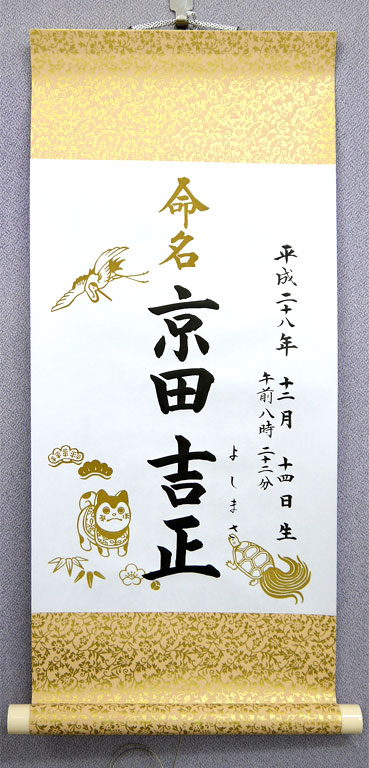 平成二十八年 十二月 十四日 生
午前八時 二十二分
命名
京田 吉正
よしまさ